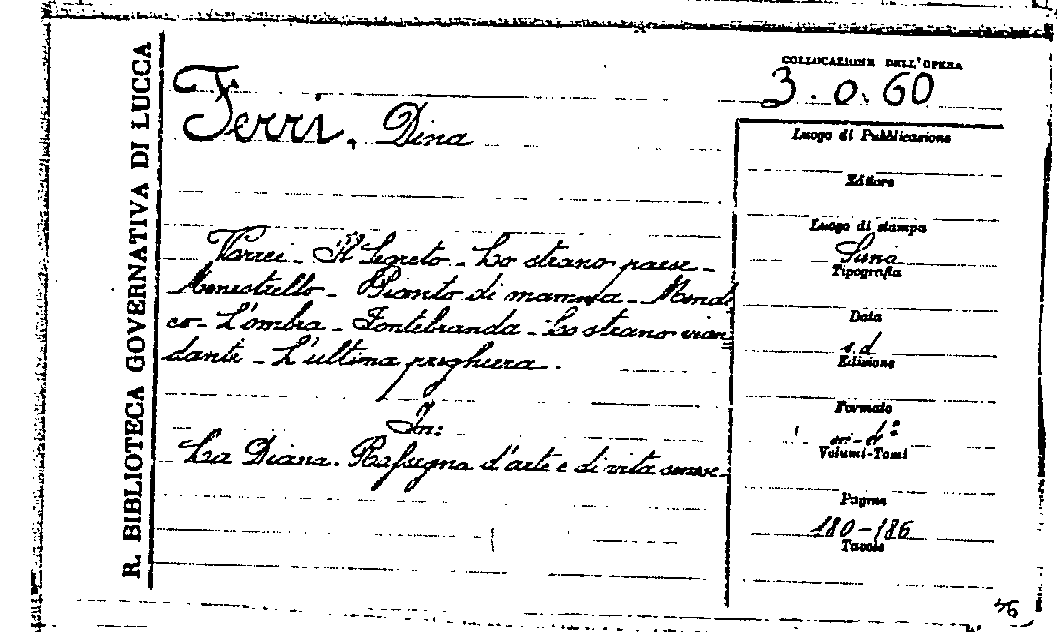 R. BIBLIOTECA GOVERNATIVA DI LUCCA
Ferri, Dina
Vorrei - Il Segreto - Lo strano paese -
Menestrello - Pianto di mamma - Mendi
co - L'ombra - Fontebranda - Lo strano vian
dante - L'ultima preghiera.
In:
La Diana. Rassegna d'arte e di vita senese.
COLLOCAZIONE DELL'OPERA
3.0.60
Luogo di Pubblicazione
Editore
Luogo di stampa
Siena
Tipografia
Data
s.d
Edizione
Formato
in-8°
Volumi-Tomi
Pagine
180-186
Tavole